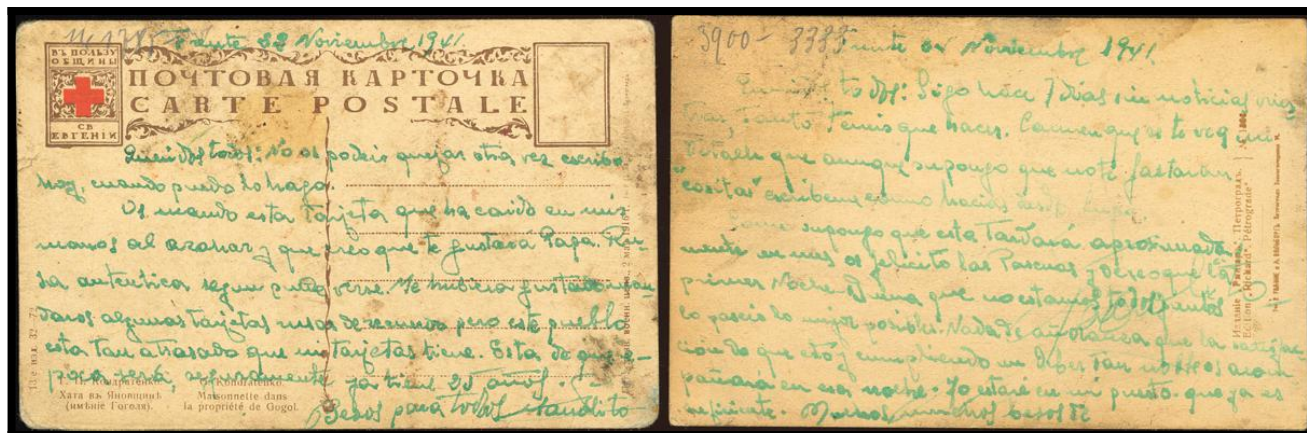 Frente 22 Noviembre 1941.
ВЪ ПОЛЬЗУ
ОБЩИНЫ
СВ
ЕВГЕНІИ
ПОЧТОВАЯ КАРТОЧКА
CARTE POSTALE
Queridos todos: No os podeis quejar otra vez escribo
hoy, cuando puedo lo hago.
Os mando esta tarjeta que ha caido en mis
manos al azahar y que creo que te gustará Papa. Ru-
sa autentica segun puedes verse. Me hubiera gustado man-
daros algunas tarjetas rusas de recuerdo pero este pueblo
esta tan atrasado que ni tarjetas tiene. Esta de que e-
poca será, seguramente ya tiene 25 años.
Besos para todos
Г. П. Кондратенко
Хата въ Яновщинѣ
(имѣніе Гоголя).
G. Kondratenko
Maisonnette dans
la propriété de Gogol.
3900 - 3383
Frente Noviembre 1941.
todos: Sigo hace 7 dias sin noticias vues
tras, tanto temis que hacer. Carmen que es te veq mi
que aunque supongo que note faltarian
"cositas" escribeme como hacias desde
Como supongo que esta tardará aproximada
mente un mes os felicito las Pascuas y deseo que la
primer Noche Buena que no estamos todos juntos
lo paseis lo mejor posible. Nada de añoranza que la satisfac
ción de que estoy cumpliendo un deber tan noble os acom
pañará en esa noche. Yo estaré en mi puesto que ya es
suficiente. Muchos muchos besos
Изданіе "Ришаръ", Петроградъ.
Edition "Richard", Pétrograde